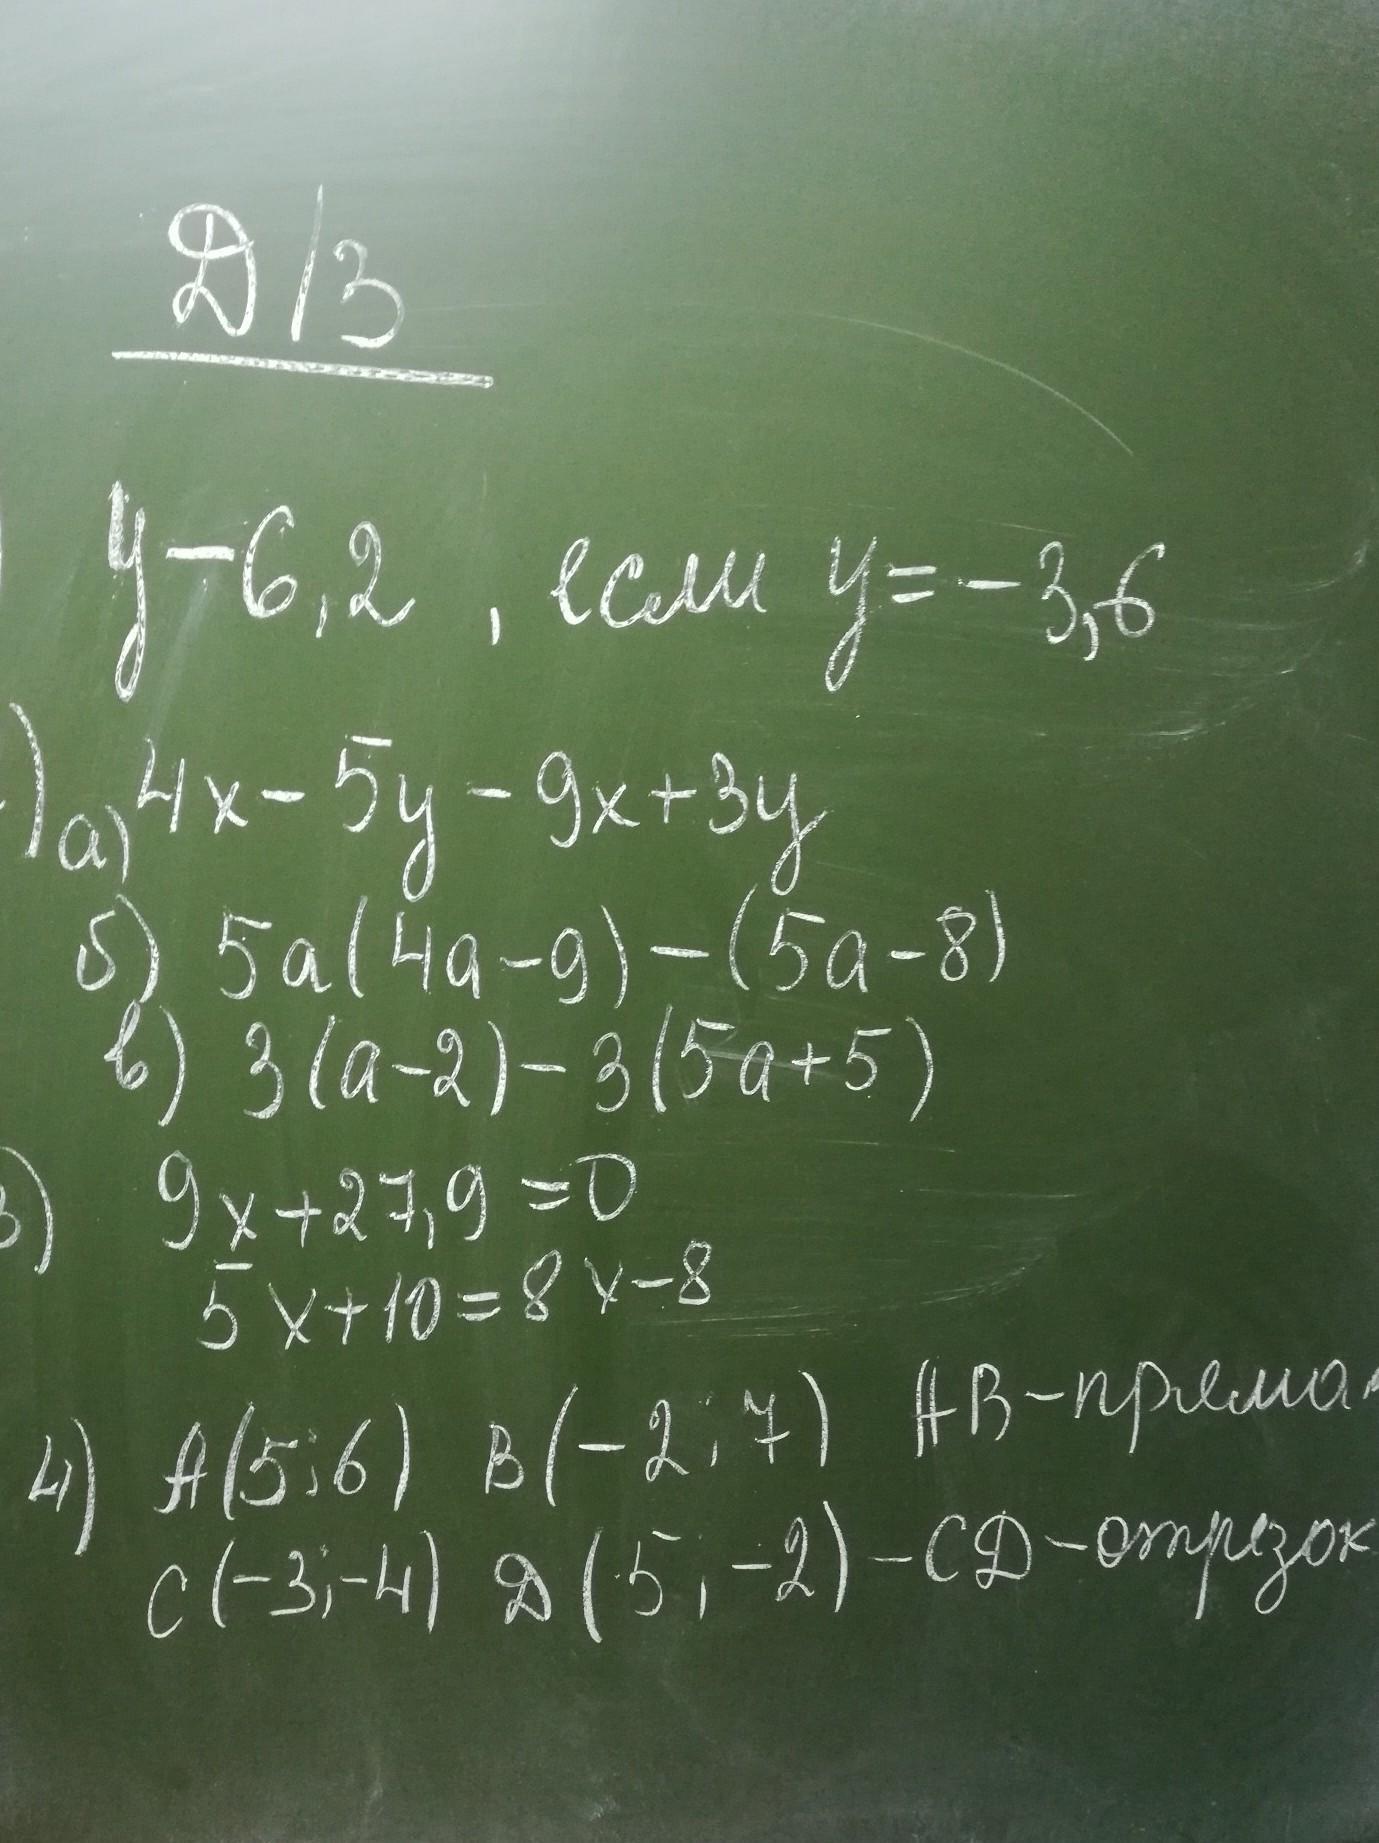 Д/З
) y-6,2, если y=-3,6
) а) 4x-5y-9x+3y
б) 5a(4a-9)-(5a-8)
в) 3(a-2)-3(5a+5)
3) 9x+27,9=0
5x+10=8x-8
4) A(5;6) B(-2;7) AB-прямая
C(-3;-4) D(5;-2)-CD-отрезок